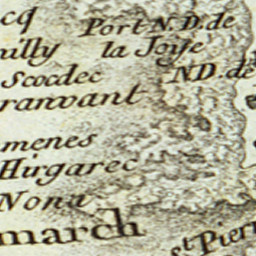 cq
Port N.D. de
la Joye
uilly
Scocdec
N.D. de
ranvant
menes
Hirgarec
Nona
march
St Pierr